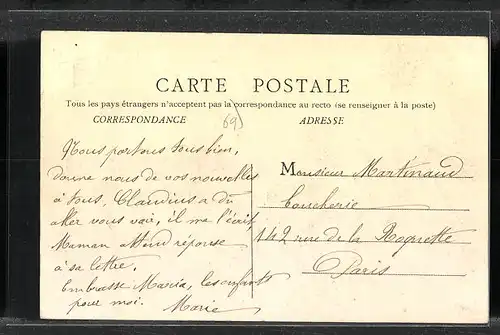 CARTE POSTALE
Tous les pays étrangers n'acceptent pas la correspondance au recto (se renseigner à la poste)
CORRESPONDANCE
69
ADRESSE
Nous portons tous bien,
Donne nous de vos nouvelles
à tous, Claudius a du
aller vous voir, il me l'écrit,
Maman attend réponse
à sa lettre.
Embrasse Maria, les enfants
pour moi. Marie
Monsieur Martinaud
Boucherie
142 rue de la Roquette
Paris